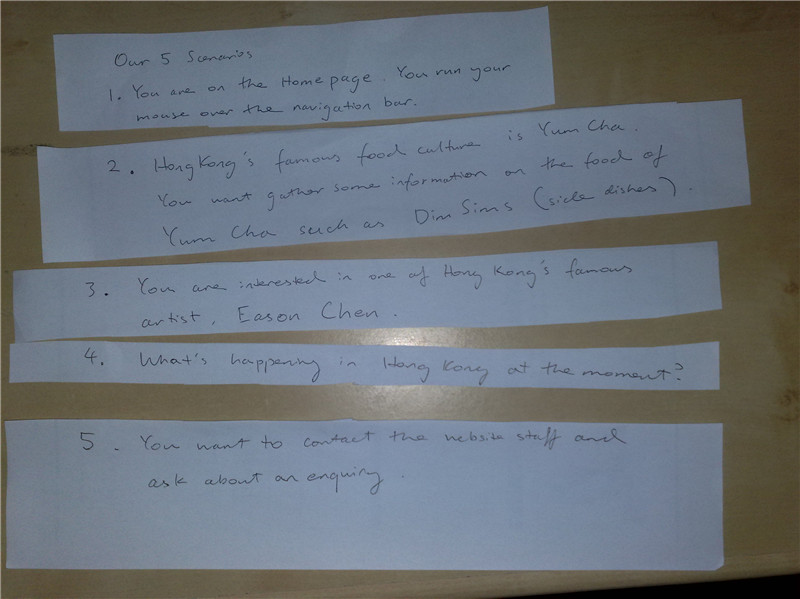 Our 5 Scenarios
1. You are on the Homepage. You run your
mouse over the navigation bar.
2. Hong Kong's famous food culture is Yum Cha.
You want gather some information on the food of
Yum Cha such as Dim Sims (side dishes).
3. You are interested in one of Hong Kong's famous
artist, Eason Chen.
4. What's happening in Hong Kong at the moment?
5. You want to contact the website staff and
ask about an enquiry.